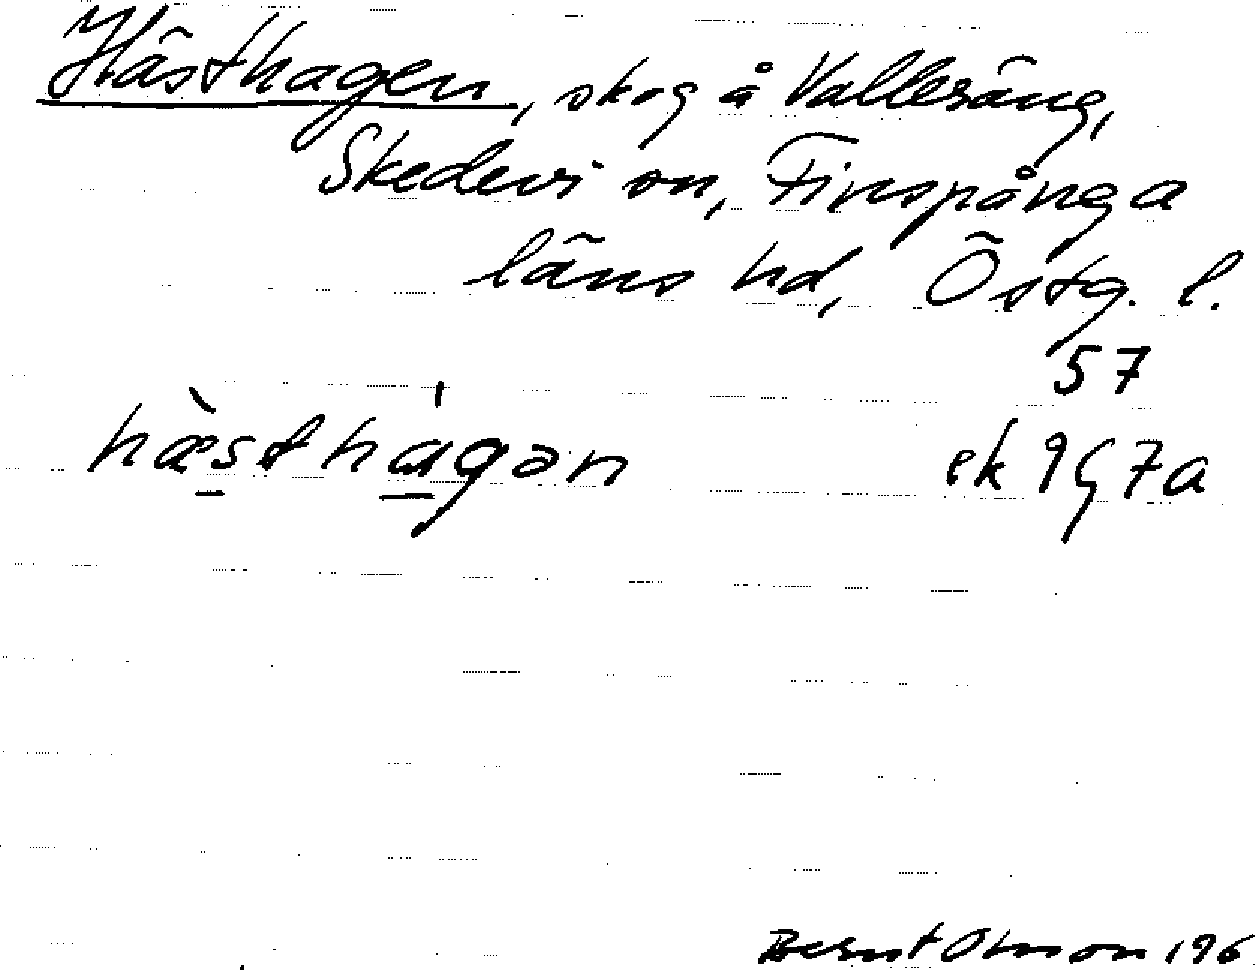 Hästhagen, skog å Vallesäng,
Skedevi sn, Finspånga
läns hd, Östg. l.
57
hæ̀sthágən ek 9G7a
Bernt Olsson 196